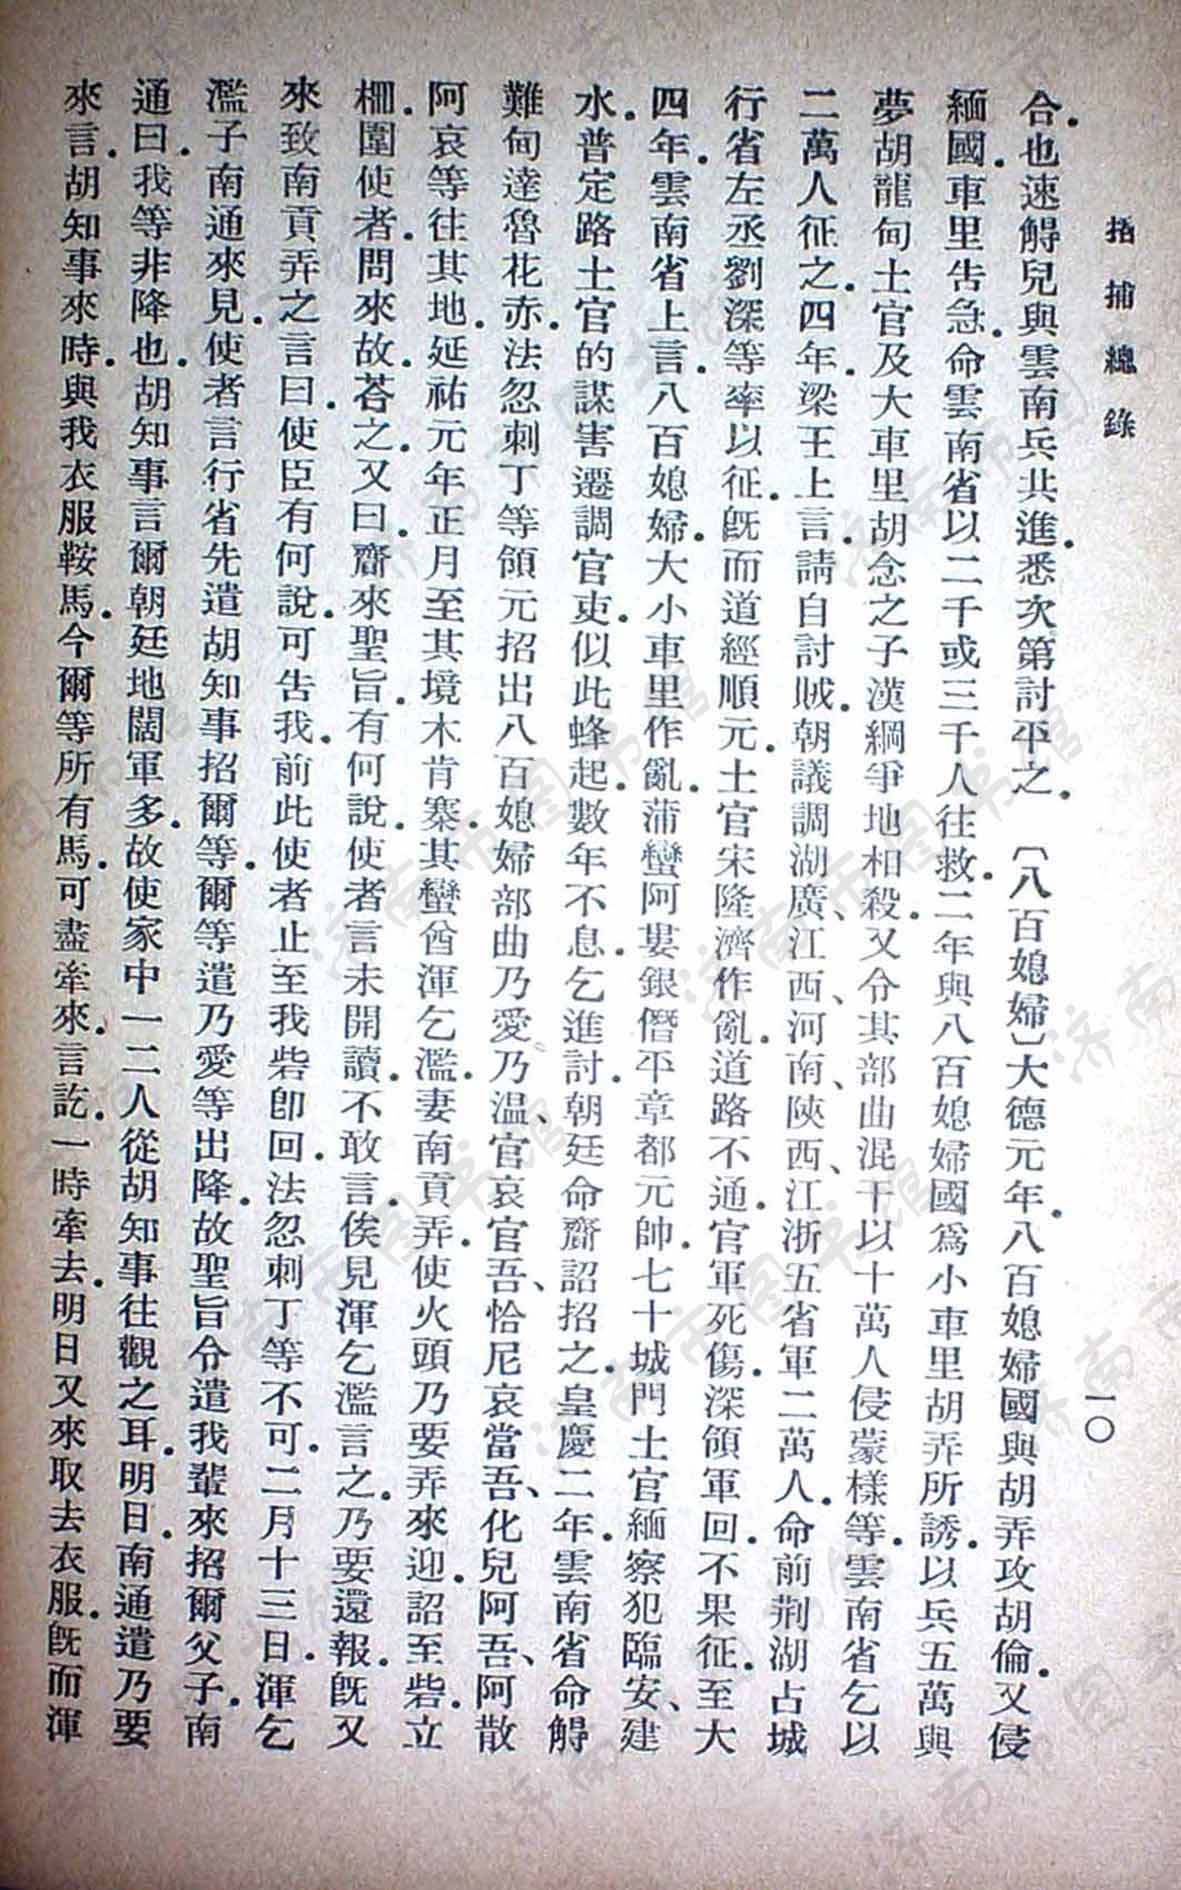 招捕總錄
一〇
合也速䚟兒與雲南兵共進悉次第討平之〔八百媳婦〕大德元年八百媳婦國與胡弄攻胡倫又侵
緬國車里告急命雲南省以二千或三千人往救二年與八百媳婦國爲小車里胡弄所誘以兵五萬與
夢胡龍甸土官及大車里胡念之子漢綱爭地相殺又令其部曲混干以十萬人侵蒙樣等雲南省乞以
二萬人征之四年梁王上言請自討賊朝議調湖廣、江西、河南、陝西、江浙五省軍二萬人命前荆湖占城
行省左丞劉深等率以征旣而道經順元土官宋隆濟作亂道路不通官軍死傷深領軍回不果征至大
四年雲南省上言八百媳婦大小車里作亂蒲蠻阿婁銀僭平章都元帥七十城門土官緬察犯臨安、建
水普定路土官的謀害遷調官吏似此蜂起數年不息乞進討朝廷命齎詔招之皇慶二年雲南省命䚟
難甸達魯花赤法忽刺丁等領元招出八百媳婦部曲乃愛乃温、官哀官吾、恰尼哀當吾、化兒阿吾、阿散
阿哀等往其地延祐元年正月至其境木肯寨其蠻酋渾乞濫妻南貢弄使火頭乃要弄來迎詔至砦立
柵圍使者問來故荅之又曰齎來聖旨有何說使者言未開讀不敢言俟見渾乞濫言之乃要還報旣又
來致南貢弄之言曰使臣有何說可告我前此使者止至我砦卽回法忽刺丁等不可二月十三日渾乞
濫子南通來見使者言行省先遣胡知事招爾等爾等遣乃愛等出降故聖旨令遣我輩來招爾父子南
通曰我等非降也胡知事言爾朝廷地闊軍多故使家中一二人從胡知事往觀之耳明日南通遣乃要
來言胡知事來時與我衣服鞍馬今爾等所有馬可盡牽來言訖一時牽去明日又來取去衣服旣而渾